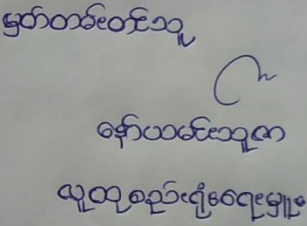 မှတ်တမ်းတင်သူ
နော်ယာမင်းသူဇာ
လူထုစည်းရုံးရေးမှူး